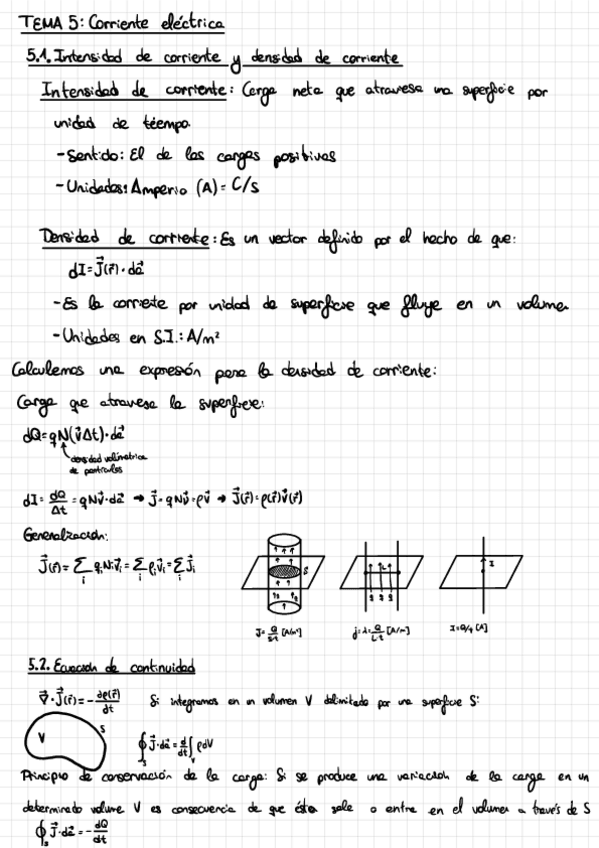 TEMA 5: Corriente eléctrica
5.1. Intensidad de corriente y densidad de corriente
Intensidad de corriente: Carga neta que atraviesa una superficie por
unidad de tiempo.
- Sentido: El de las cargas positivas
- Unidades: Amperio (A) = C/s
Densidad de corriente: Es un vector definido por el hecho de que:
dI = J⃗(r⃗) · da⃗
- Es la corriente por unidad de superficie que fluye en un volumen
- Unidades en S.I.: A/m²
Calculemos una expresión para la densidad de corriente:
Carga que atraviesa la superficie:
dQ = qN(v⃗Δt) · da⃗
densidad volumétrica
de partículas
dI = dQ/Δt = qNv⃗ · da⃗ → J⃗ = qNv⃗ = ρv⃗ → J⃗(r⃗) = ρ(r⃗)v⃗(r⃗)
Generalización:
J⃗(r⃗) = Σᵢ qᵢNᵢv⃗ᵢ = Σᵢ ρᵢv⃗ᵢ = Σᵢ J⃗ᵢ
S
I
J = Q/S·t [A/m²]
[A/m]
[A]
5.2. Ecuación de continuidad
∇⃗ · J⃗(r⃗) = - dρ(r⃗)/dt Si integramos en un volumen V delimitado por una superficie S:
V S
∮ₛ J⃗ · da⃗ = d/dt ∫ᵥ ρdV
Principio de conservación de la carga: Si se produce una variación de la carga en un
determinado volume V es consecuencia de que ésta sale o entre en el volumen a través de S
∮ₛ J⃗ · da⃗ = - dQ/dt